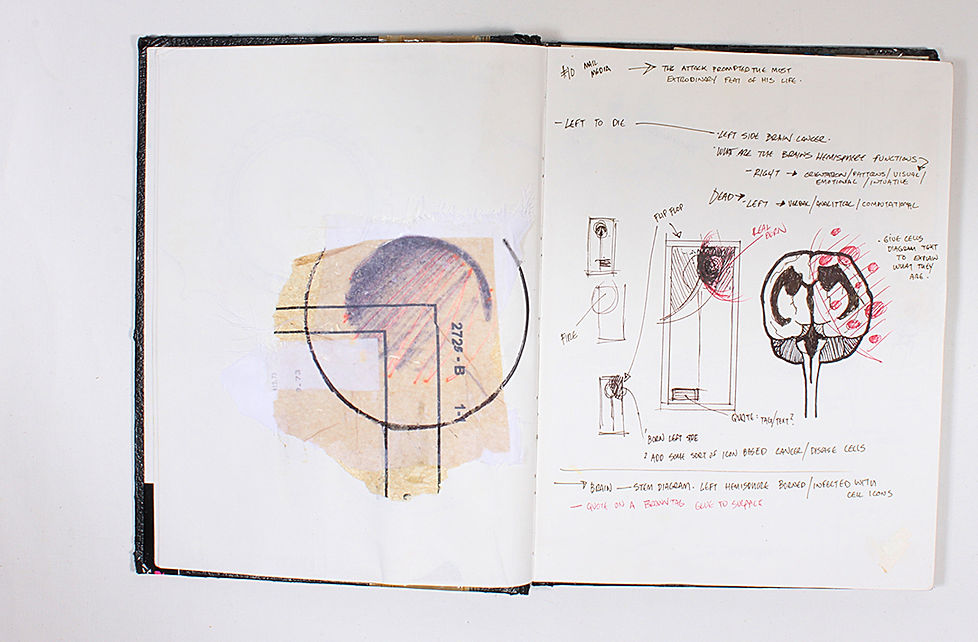 2725 - B 1-
.73
#10 MEDIA → THE ATTACK PROMPTED THE MOST
EXTRODINARY FEAT OF HIS LIFE.
- LEFT TO DIE
· LEFT SIDE BRAIN CANCER.
· WHAT ARE THE BRAINS HEMISPHERE FUNCTIONS
- RIGHT → ORIENTATION/PATTERNS/VISUAL/
EMOTIONAL/INTUATIVE
DEAD → - LEFT → VERBAL/ANALITICAL/COMPUTATIONAL
FLIP FLOP
REAL BURN
· GIVE CELLS
DIAGRAM TEXT
TO EXPLAIN
WHAT THEY
ARE.
FIRE
QUOTE: TAG/TEXT?
BURN LEFT SIDE
ADD SOME SORT OF ICON BASED CANCER/DISEASE CELLS
→ BRAIN — STEM DIAGRAM. LEFT HEMISPHERE BURNED/INFECTED WITH
CELL ICONS
- QUOTE ON A BROWN TAG GLUE TO SURFACE